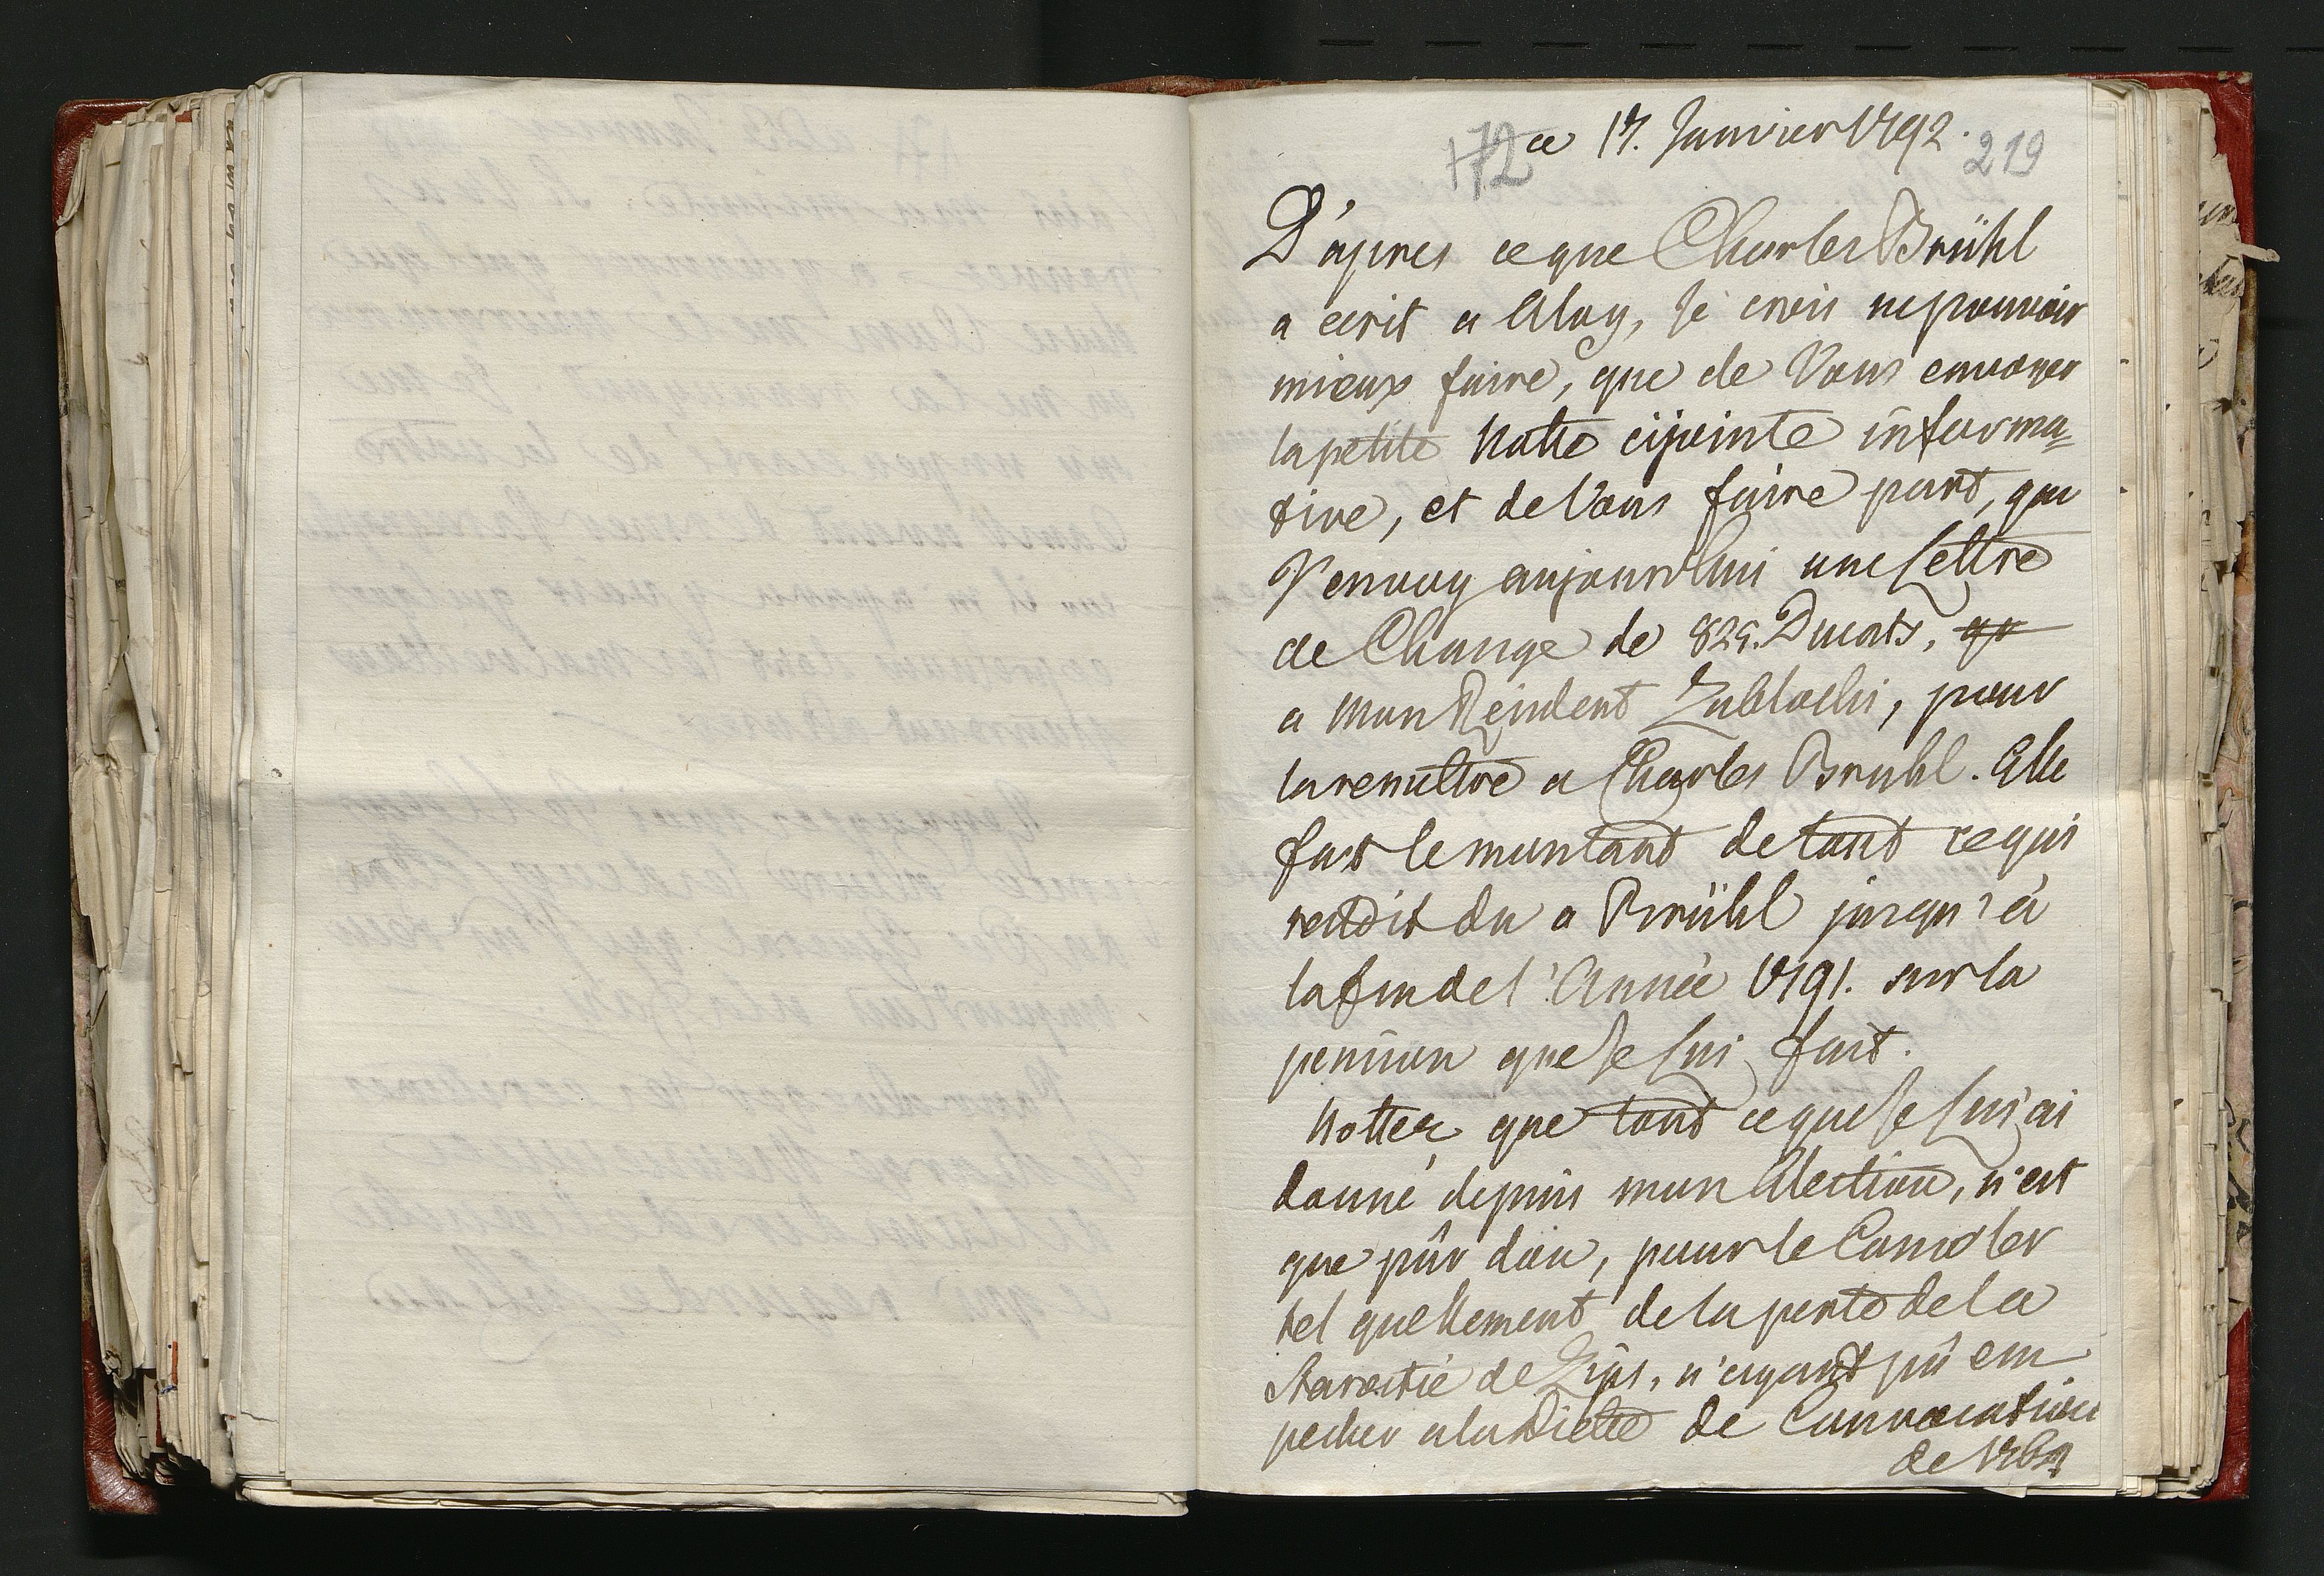 172 ce 17. Janvier 1792. 219
D'apres ce que Charles Brühl
a ecrit a Aloy, Je crois ne pouvoir
mieux faire, que de Vous envoyer
la petite Notte cijointe informa=
tive, et de Vous faire part, que
J'envoy aujourdhui une Lettre
de Change de 825. Ducats, qu
a mon Resident Zablocki, pour
la remettre a Charles Bruhl. Elle
fait le montant de tout ce qui
restoit du a Brühl jusqu'à
la fin de l'Année 1791. sur la
pension que Je Lui fait.
Nottez que tout ce que Je Lui ai
donné depuis mon Election, n'est
que pûr don, pour le Consoler
tel quellement de la perte de la
Starostie de Zips, n'ayant pû em
pecher a la Diette de Convocation
de 1764